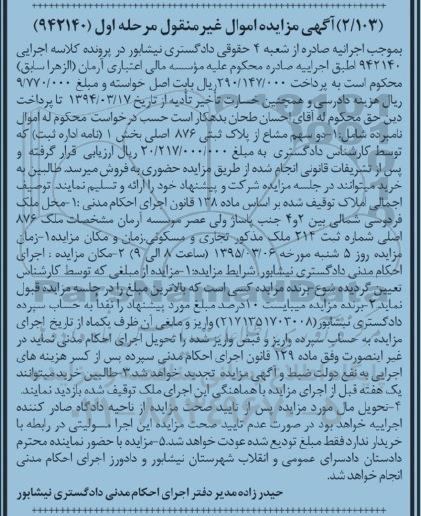 (۲/۱۰۳) آگهی مزایده اموال غیر منقول مرحله اول (۹۴۲۱۴۰)
بموجب اجرائیه صادره از شعبه ۴ حقوقی دادگستری نیشابور در پرونده کلاسه اجرایی
۹۴۲۱۴۰ طبق اجراییه صادره محکوم علیه مؤسسه مالی اعتباری آرمان (الزهرا سابق)
محکوم است به پرداخت ۲۹۰/۱۴۷/۰۰۰ ریال بابت اصل خواسته و مبلغ ۹/۷۷۰/۰۰۰
ریال هزینه دادرسی و همچنین خسارت تأخیر تأدیه از تاریخ ۱۳۹۴/۰۳/۱۷ تا پرداخت
دین حق محکوم له آقای احسان طحان بدهکار است حسب درخواست محکوم له اموال
نامبرده شامل: ۱- دو سهم مشاع از پلاک ثبتی ۸۷۶ اصلی بخش ۱ (نامه اداره ثبت) که
توسط کارشناس دادگستری به مبلغ ۲۰/۲۱۷/۰۰۰/۰۰۰ ریال ارزیابی قرار گرفته و
پس از تشریفات قانونی انجام شده از طریق مزایده حضوری به فروش میرسد. طالبین به
خرید میتوانند در جلسه مزایده شرکت و پیشنهاد خود را ارائه و تسلیم نمایند. توصیف
اجمالی املاک توقیف شده بر اساس ماده ۱۳۸ قانون اجرای احکام مدنی :۱-محل ملک
فردوسی شمالی بین ۲و۴ جنب پاساژ ولی عصر موسسه آرمان مشخصات ملک ۸۷۶
اصلی شماره ثبت ۲۱۴ ملک مذکور تجاری و مسکونی.زمان و مکان مزایده۱-زمان
مزایده روز ۵ شنبه مورخه ۱۳۹۵/۰۳/۰۶ (ساعت ۸ الی ۹) ۲-مکان مزایده : اجرای
احکام مدنی دادگستری نیشابور. شرایط مزایده:۱-مزایده از مبلغی که توسط کارشناس
تعیین گردیده شروع، برنده مزایده کسی است که بالاترین مبلغ را در جلسه مزایده قبول
نماید.۲-برنده مزایده میبایست ۱۰درصد مبلغ مورد پیشنهاد را نقداً به حساب سپرده
دادگستری نیشابور(۲۱۷۱۳۵۱۷۰۳۰۰۸) واریز و مابقی آن ظرف یکماه از تاریخ اجرای
مزایده به حساب سپرده واریز و قبض واریز شده را تحویل اجرای احکام مدنی نماید در
غیر اینصورت وفق ماده ۱۲۹ قانون اجرای احکام مدنی سپرده پس از کسر هزینه های
اجرایی به نفع دولت ضبط و آگهی مزایده تجدید خواهد شد.۳-طالبین خرید میتوانند
یک هفته قبل از اجرای مزایده با هماهنگی این اجرای ملک توقیف شده بازدید نمایند.
۴-تحویل مال مورد مزایده پس از تایید صحت مزایده از ناحیه دادگاه صادر کننده
اجراییه خواهد بود در صورت عدم تأیید صحت مزایده این اجرا مسولیتی در رابطه با
خریدار ندارد فقط مبلغ تودیع شده عودت خواهد شد.۵-مزایده با حضور نماینده محترم
دادستان دادسرای عمومی و انقلاب شهرستان نیشابور و دادورز اجرای احکام مدنی
انجام خواهد شد.
حیدر زاده مدیر دفتر اجرای احکام مدنی دادگستری نیشابور